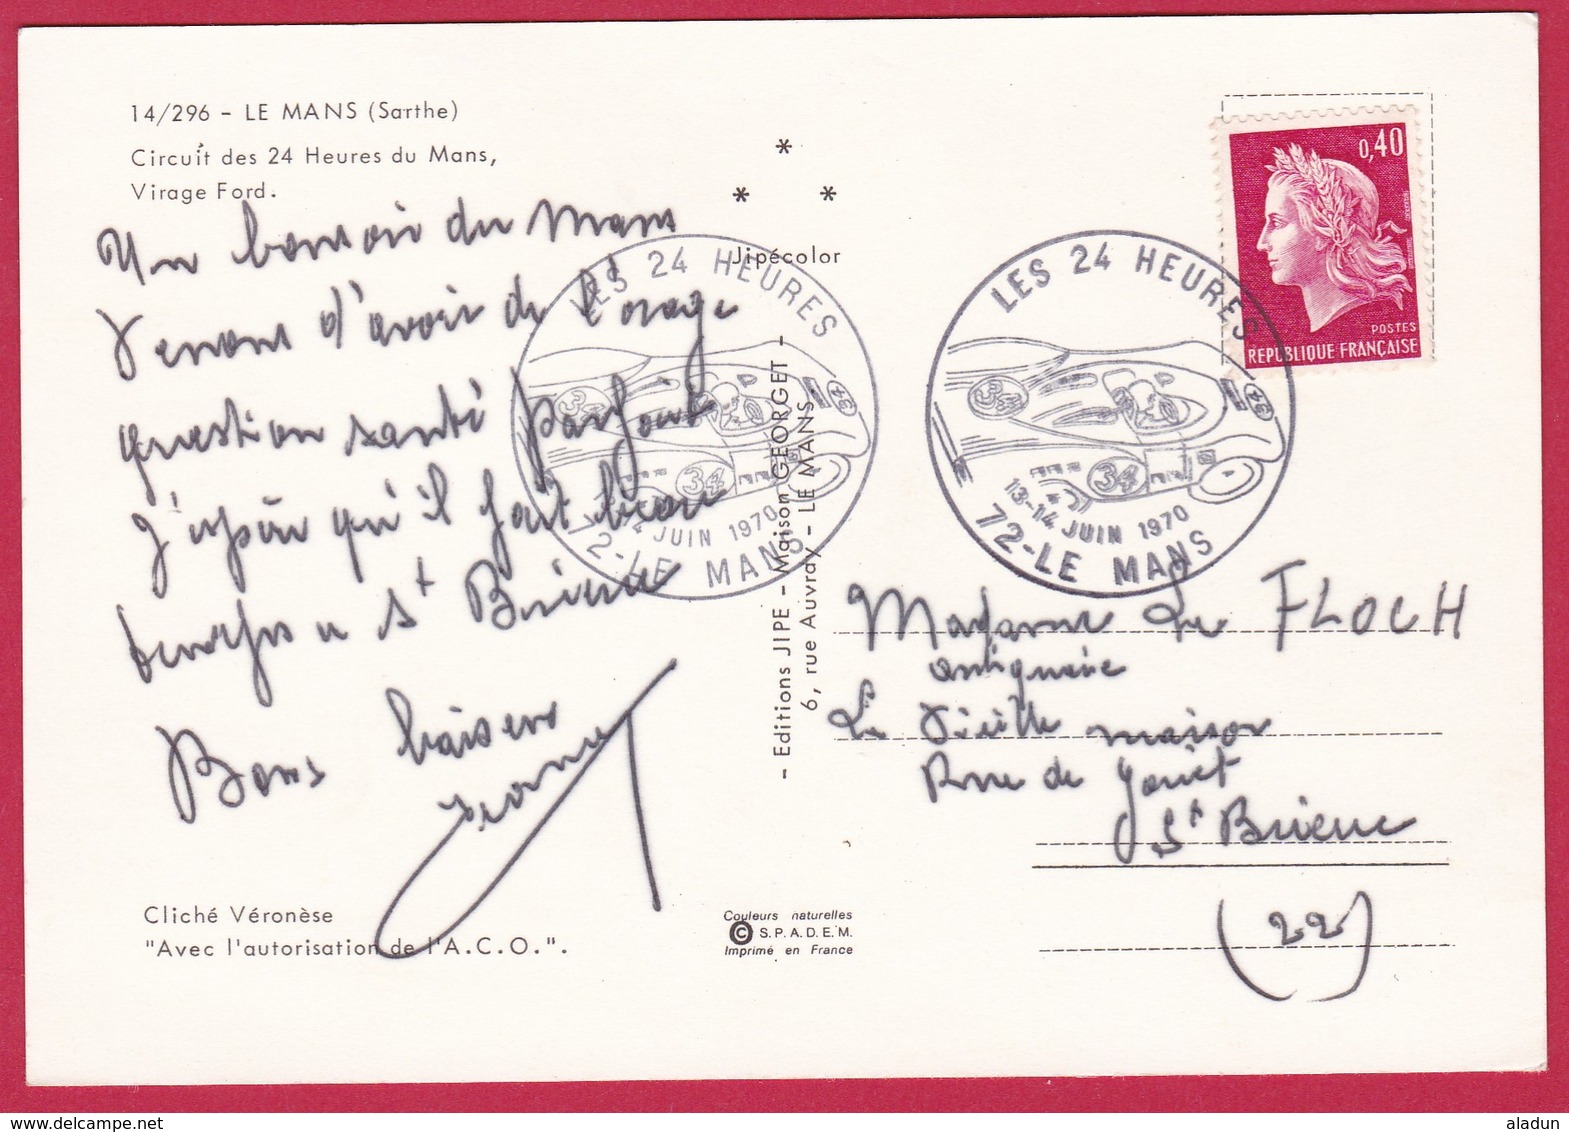 14/296 – LE MANS (Sarthe)
Circuit des 24 Heures du Mans,
Virage Ford.
Un bonsoir du Mans
Venons d'avoir de l'orage
question santé parfait
J'espère qu'il fait beau
à St Brieuc
Bons baisers
Cliché Véronèse
"Avec l'autorisation de l'A.C.O.".
* * *
Jipécolor
- Editions JIPE - Maison GEORGET -
6, rue Auvray - LE MANS -
Couleurs naturelles
© S.P.A.D.E.M.
Imprimé en France
LES 24 HEURES
34
34
34
14 JUIN 1970
72-LE MANS
LES 24 HEURES
34
34
34
13-14 JUIN 1970
72-LE MANS
0,40
POSTES
REPUBLIQUE FRANÇAISE
Madame Le FLOCH
antiquaire
La Vieille maison
Rue de Gouët
St Brieuc
(22)
aladun